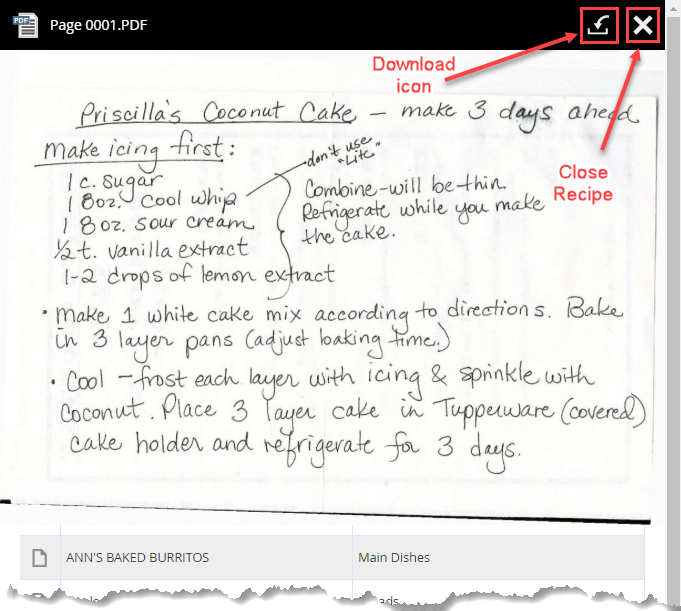 Page 0001.PDF
Download
icon
Close
Recipe
Priscilla's Coconut Cake – make 3 days ahead
Make icing first:
don't use
"Lite"
1 c. sugar
1 8oz. Cool whip
1 8 oz. sour cream
½ t. vanilla extract
1-2 drops of lemon extract
Combine – will be thin.
Refrigerate while you make
the cake.
• Make 1 white cake mix according to directions. Bake
in 3 layer pans (adjust baking time.)
• Cool – frost each layer with icing & sprinkle with
Coconut. Place 3 layer cake in Tupperware (covered)
cake holder and refrigerate for 3 days.
ANN'S BAKED BURRITOS Main Dishes